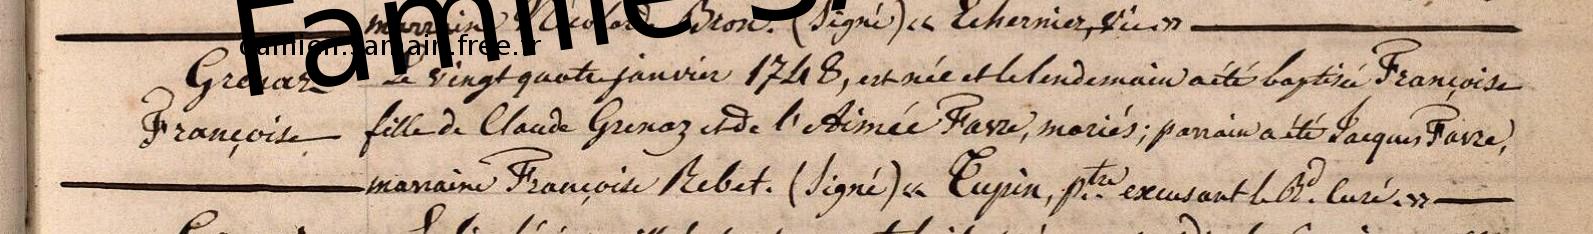 Familles
damien.sarrain.free.fr
marraine Nicolarde Bron. (Signé) « Echernier, vic. »
Grenaz Le vingt quatre janvier 1748, est née et le lendemain a été baptisée Françoise
Françoise fille de Claude Grenaz et de l'Aimée Favre, mariés; parrain a été Jacques Favre,
marraine Françoise Rebet. (Signé) « Tupin, ptre excusant le Rd. Curé. »